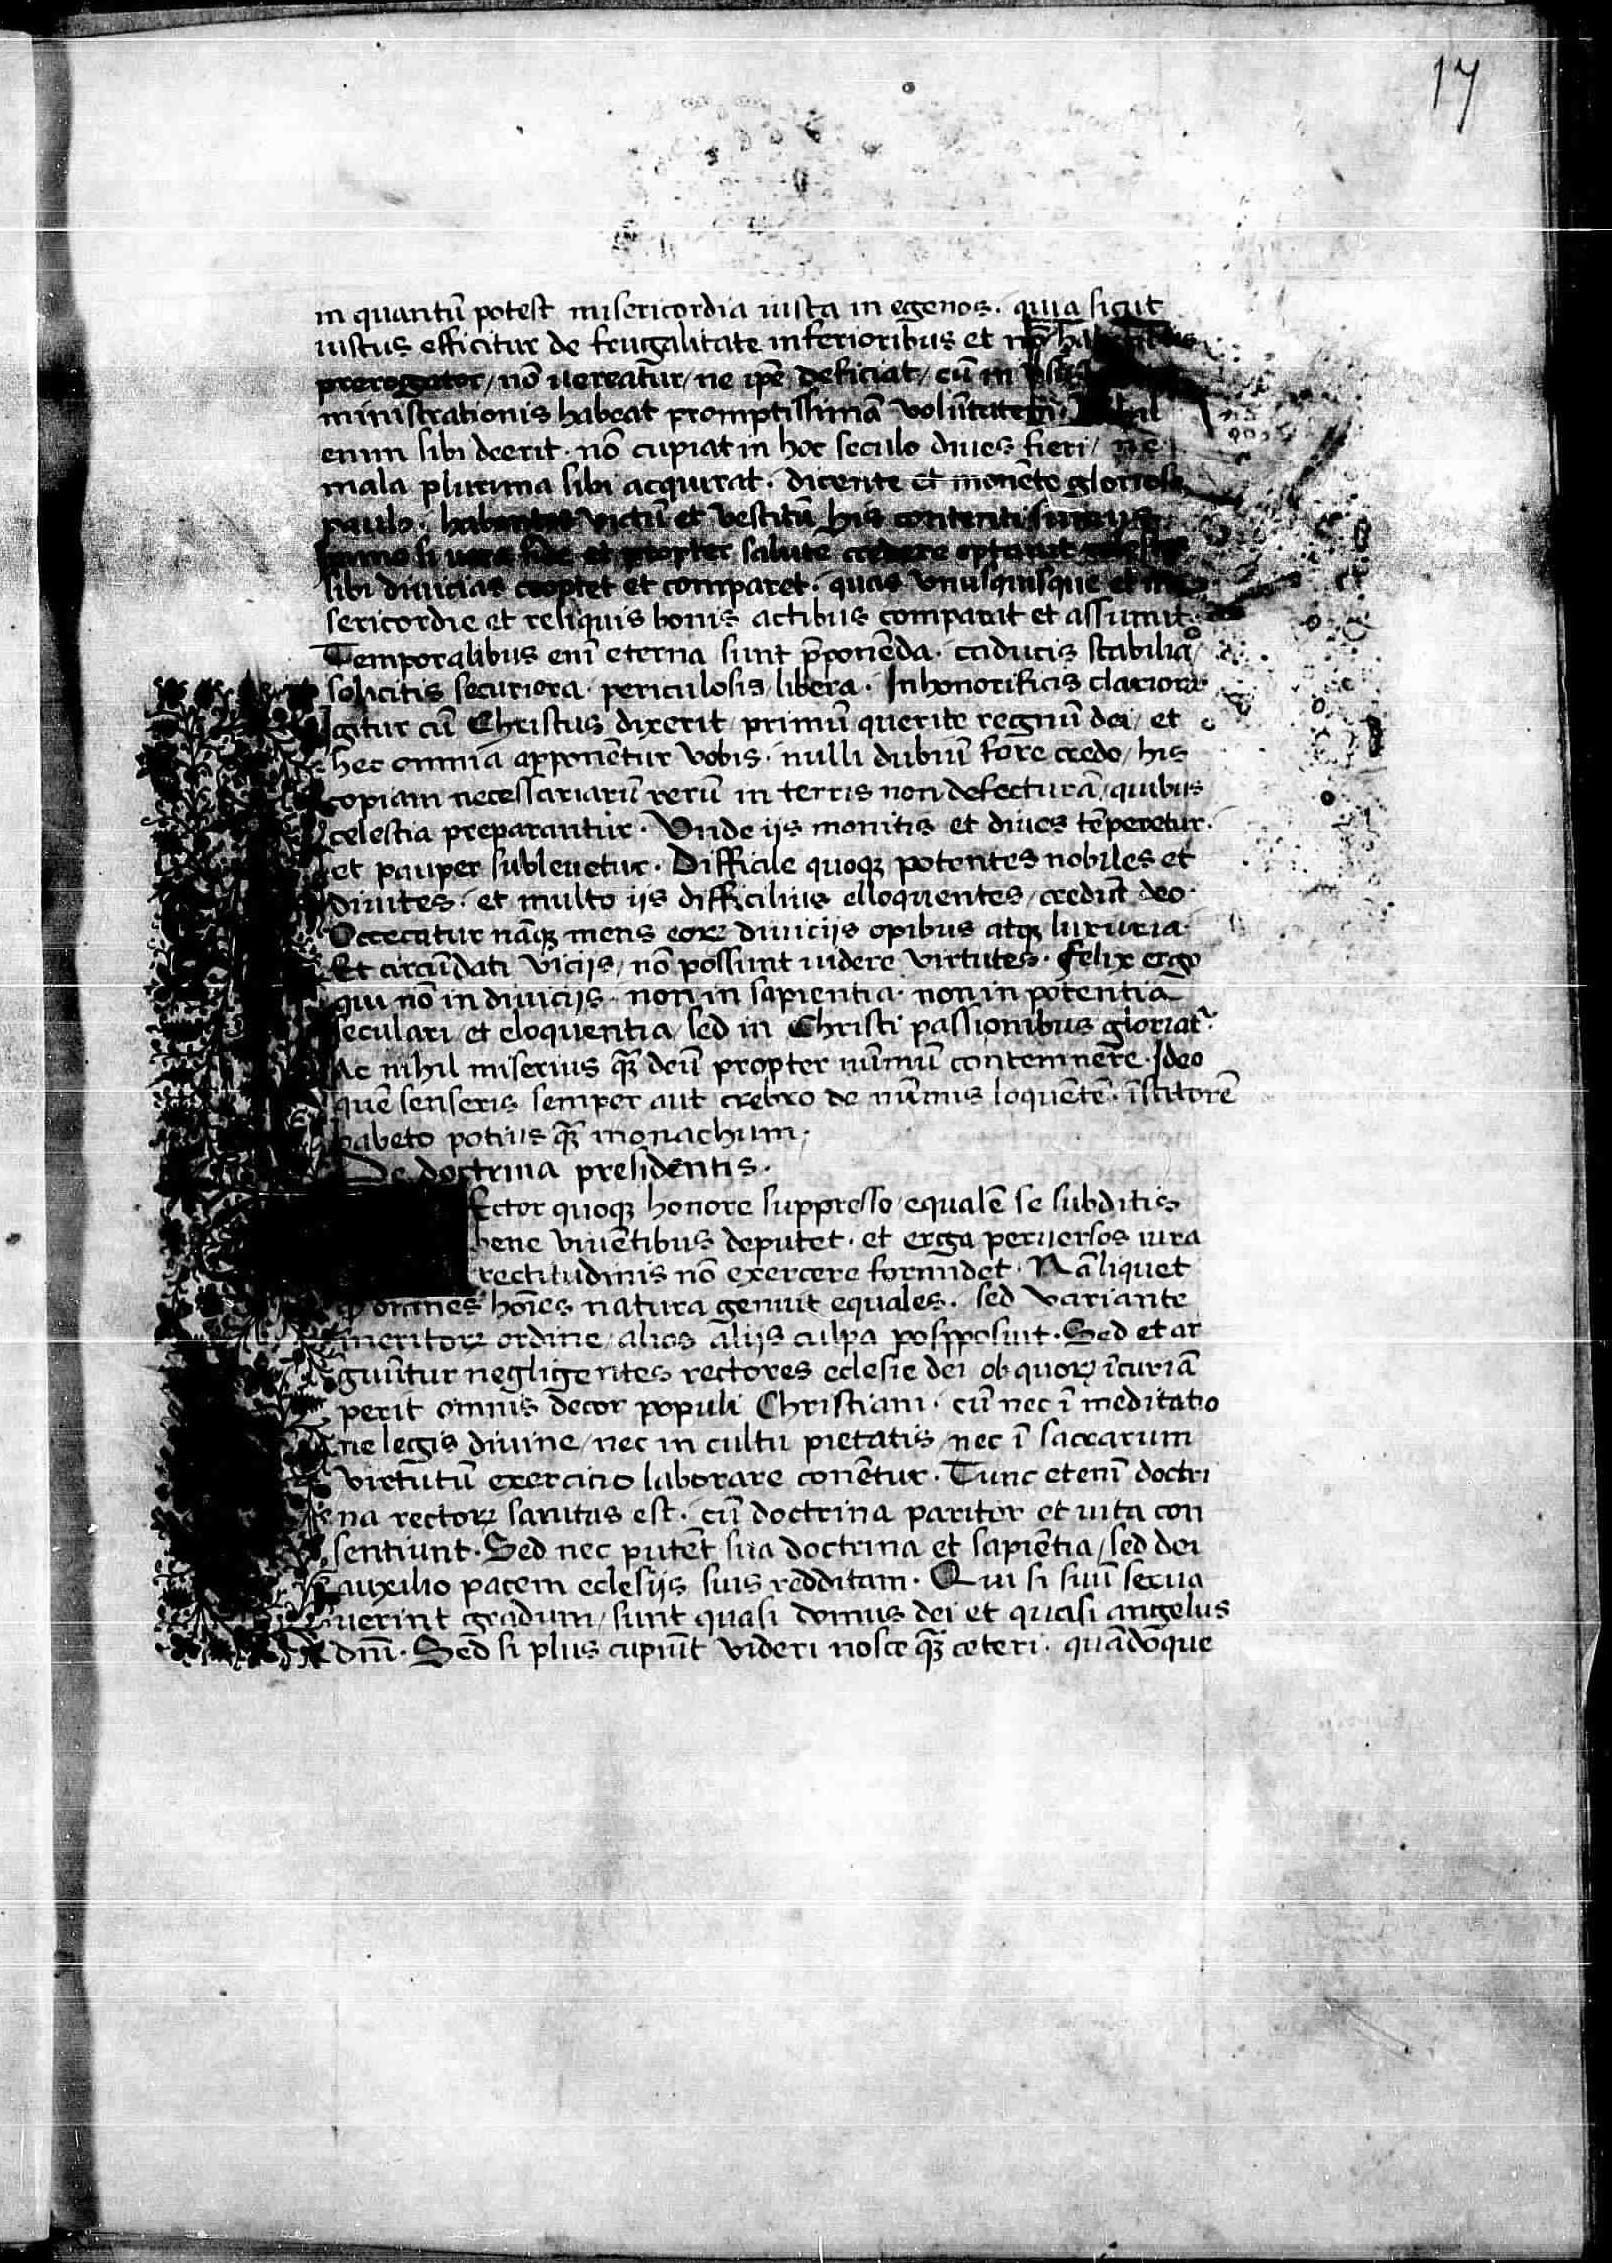 17
in quantū potest misericordia iusta in egenos. quia sicut
iustus efficitur de frugalitate inferioribus et nō
prerogator / nō uereatur / ne ipē deficiat / cū in
ministrationis habeat promptissimā volūtatem.
enim sibi deerit. nō cupiat in hoc seculo diues fieri / ne
mala plurima sibi acquirat. dicente et monēte glorioso
paulo. habentes victū et vestitū his contenti simus
si et propter salutē credere
sibi diuicias cooptet et comparet. quas vnusquisque et mi
sericordie et reliquis bonis actibus comparat et assumit.
Temporalibus enī eterna sunt p̄ponēda. caducis stabilia
solicitis securiora. periculosis / libera. Inhonorificis clariora.
Igitur cū Christus dixerit / primū querite regnū dei / et
hec omnia apponētur vobis. nulli dubiū fore credo / his
copiam necessariarū rerū in terris non defecturā / quibus
celestia preparantur. Vnde iis monitis et diues tēperetur.
et pauper subleuetur. Difficile quoqꝫ potentes nobiles et
diuites. et multo iis difficilius elloquentes / credūt deo.
Occecatur nāqꝫ mens eorꝝ diuiciis opibus atqꝫ luxuria.
Et circūdati viciis / nō possunt uidere virtutes. Felix ergo
qui nō in diuiciis. non in sapientia. non in potentia
seculari / et eloquentia / sed in Christi passionibus gloriat᷑.
Ac nihil miserius qꝫ̄ deū propter nūmū contemnere. Ideo
quē senseris semper aut crebro de nūmis loquētē. īstitorē
habeto potius qꝫ̄ monachum.
De doctrina presidentis.
ector quoqꝫ honore suppresso / equalē se subditis
bene viuētibus deputet. et erga peruersos iura
rectitudinis nō exercere formidet. Nā liquet
ꝙ omnes hoīes natura genuit equales. sed variante
meritorꝝ ordine / alios aliis culpa posposuit. Sed et ar
guūtur negligentes rectores eclesie dei ob quorꝝ īcuriā
perit omnis decor populi Christiani. cū nec ī meditatio
ne legis diuine / nec in cultu pietatis / nec ī sacrarum
virtutū exercicio laborare conētur. Tunc etenī doctri
na rectorꝝ sanitas est. cū doctrina pariter et uita con
sentiunt. Sed nec putēt sua doctrina et sapiētia / sed dei
auxilio pacem eclesiis suis redditam. Qui si suū serua
uerint gradum / sunt quasi domus dei et quasi angelus
dnī. Sed si plus cupiūt videri nosce qꝫ̄ ceteri. quādoque